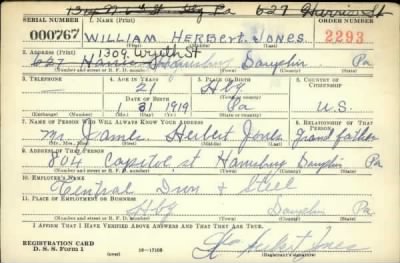 1314 N 6th St Hbg Pa 627 Harrison St
SERIAL NUMBER 1. NAME (Print) ORDER NUMBER
000767 WILLIAM HERBERT JONES 2293
1309 Wyeth St
2. ADDRESS (Print)
627 Harris Harrisburg Dauphin Pa
(Number and street or R. F. D. number) (Town) (County) (State)
3. TELEPHONE 4. AGE IN YEARS 5. PLACE OF BIRTH 6. COUNTRY OF CITIZENSHIP
21 Hbg
DATE OF BIRTH (Town or county)
1 31 1919 Pa U.S.
(Exchange) (Number) (Mo.) (Day) (Yr.) (State or country)
7. NAME OF PERSON WHO WILL ALWAYS KNOW YOUR ADDRESS 8. RELATIONSHIP OF THAT PERSON
Mr. James Herbert Jones Grandfather
(Mr., Mrs., Miss) (First) (Middle) (Last)
9. ADDRESS OF THAT PERSON
804 Capitol st Harrisburg Dauphin Pa
(Number and street or R. F. D. number) (Town) (County) (State)
10. EMPLOYER'S NAME
Central Iron & Steel
11. PLACE OF EMPLOYMENT OR BUSINESS
Hbg Dauphin Pa
(Number and street or R. F. D. number) (Town) (County) (State)
I AFFIRM THAT I HAVE VERIFIED ABOVE ANSWERS AND THAT THEY ARE TRUE.
REGISTRATION CARD
D. S. S. Form 1 16-17105 Wm Herbert Jones